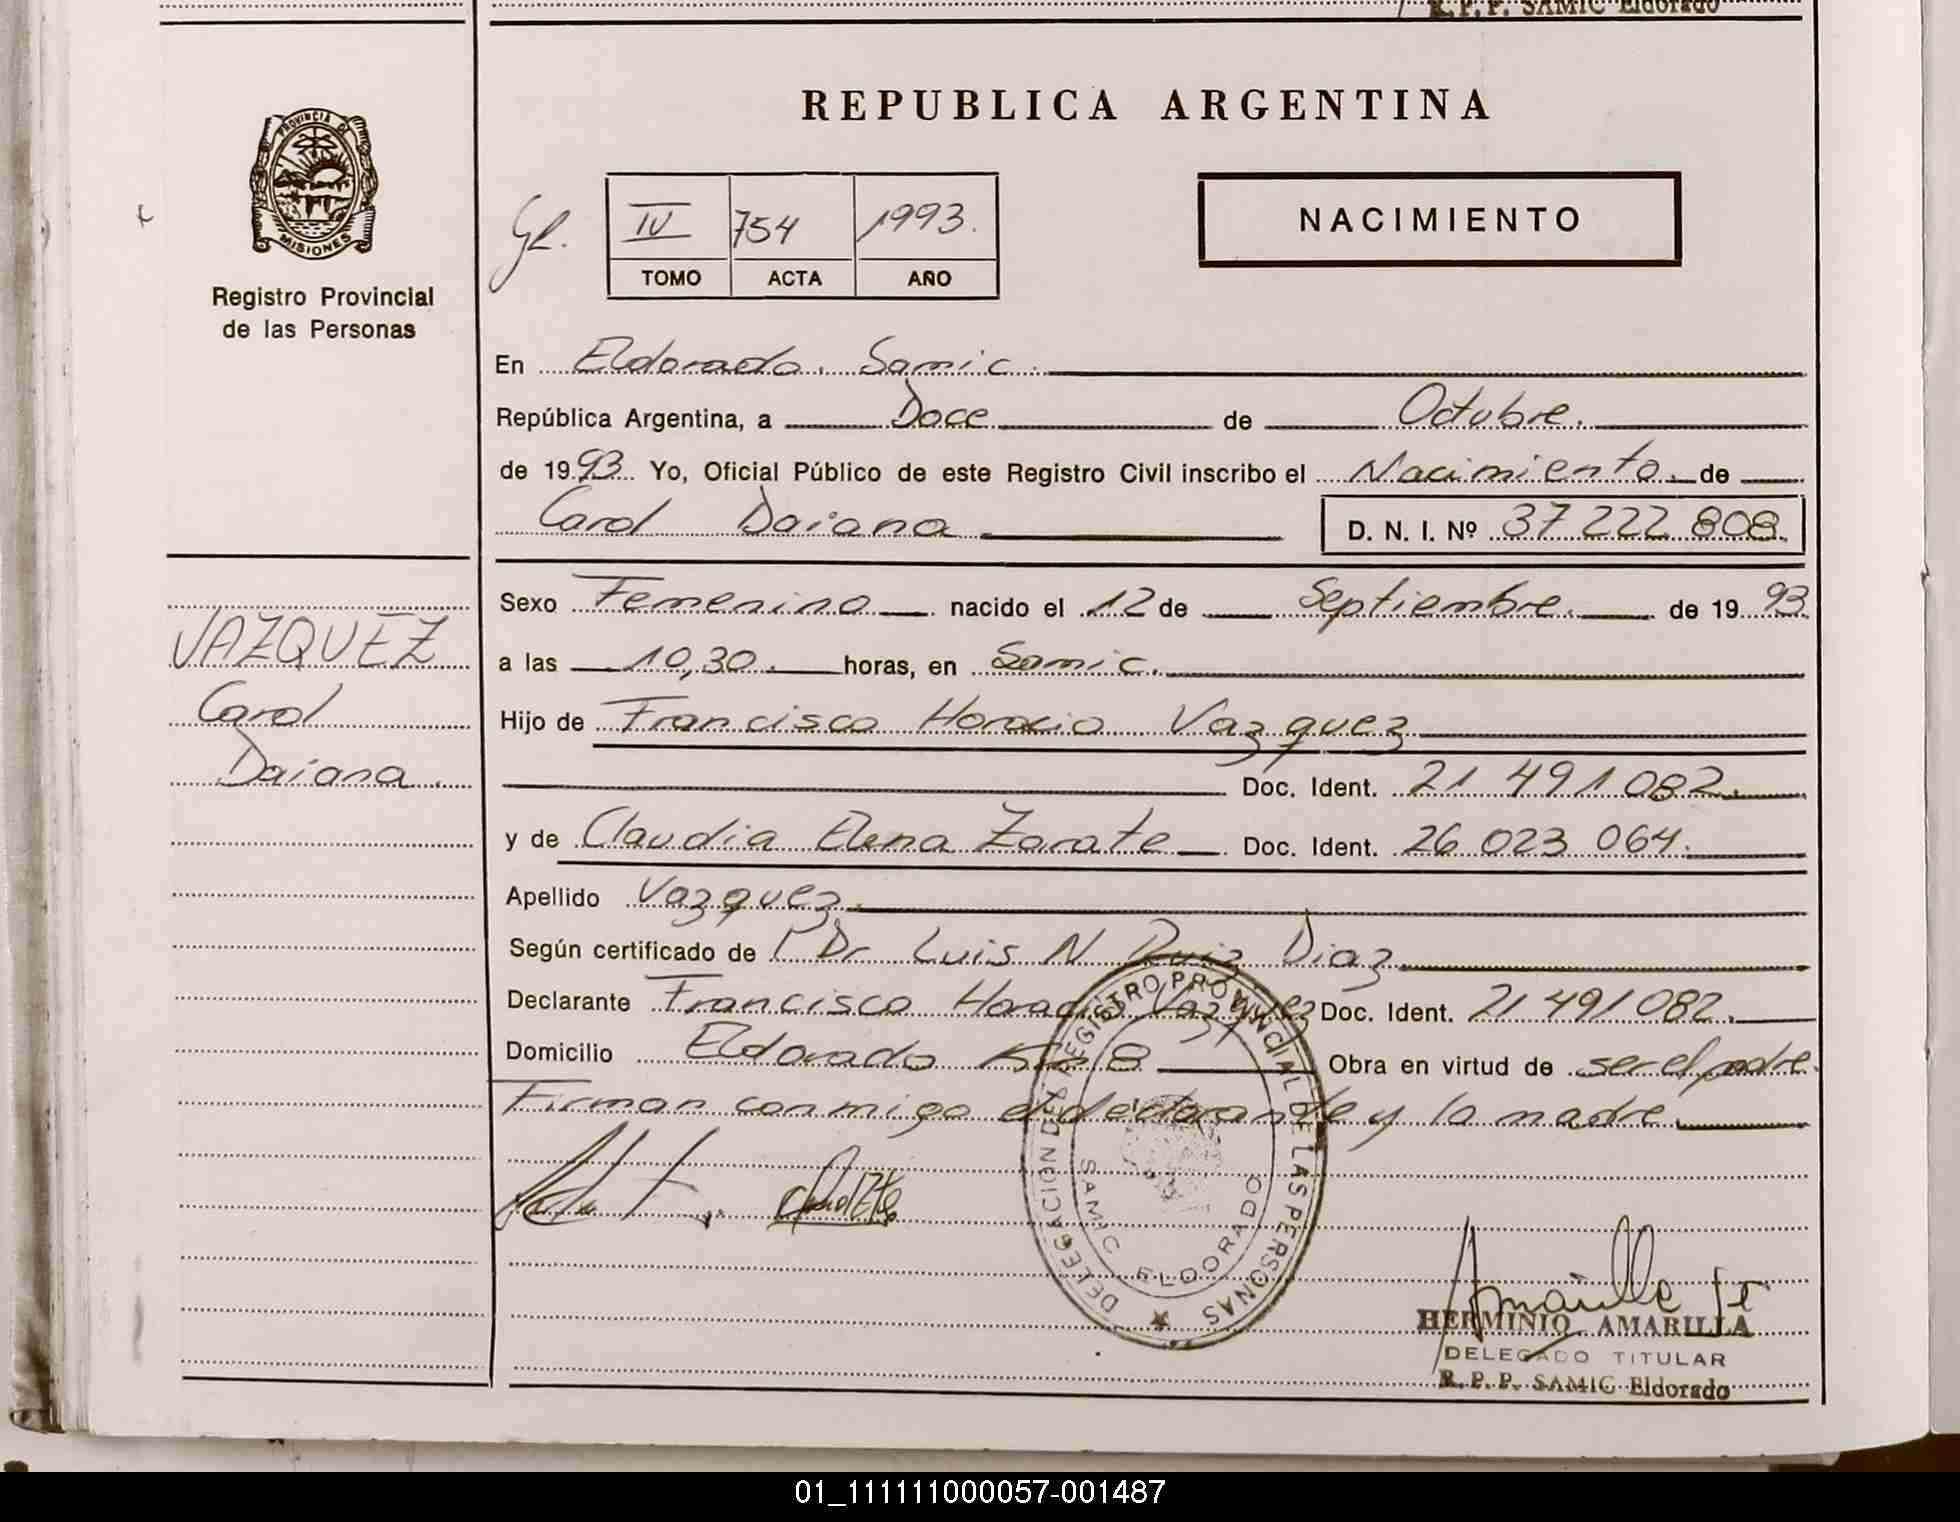 R. P. P. SAMIC Eldorado
REPUBLICA ARGENTINA
PROVINCIA DE
MISIONES
Registro Provincial
de las Personas
IV 754 1993.
TOMO ACTA AÑO
NACIMIENTO
En Eldorado. Samic.
República Argentina, a Doce de Octubre.
de 1993. Yo, Oficial Público de este Registro Civil inscribo el Nacimiento. de
Carol Daiana D. N. I. Nº 37 222 808.
Sexo Femenino nacido el 12 de Septiembre. de 19 93.
a las 10,30. horas, en Samic.
Hijo de Francisco Horacio Vazquez
Doc. Ident. 21 491 082.
y de Claudia Elena Zarate Doc. Ident. 26 023 064.
Apellido Vazquez.
Según certificado de Dr Luis N Ruiz Diaz
Declarante Francisco Horacio Vazquez Doc. Ident. 21 491 082.
Domicilio Eldorado Km 8 Obra en virtud de ser el padre.
Firman conmigo el declarante y la madre
VAZQUEZ
Carol
Daiana.
DELEGACION DEL REGISTRO PROVINCIAL DE LAS PERSONAS
SAMIC ELDORADO
HERMINIO AMARILLA
DELEGADO TITULAR
R. P. P. SAMIC Eldorado
01_111111000057-001487